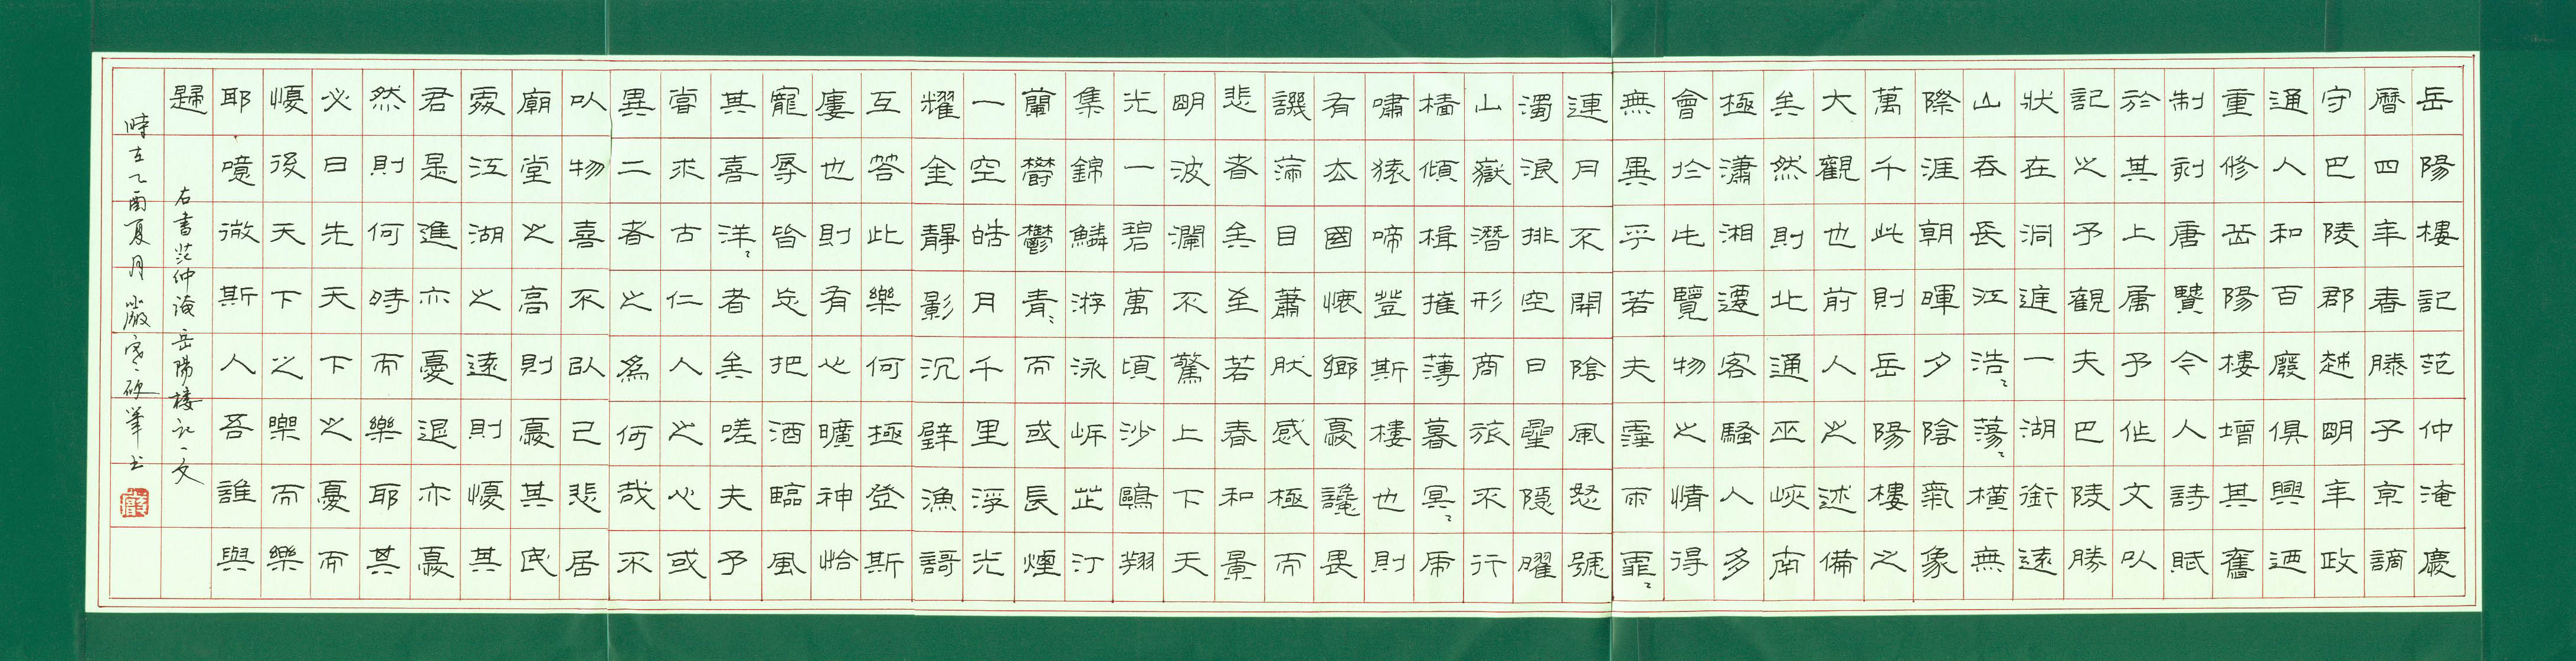 岳陽樓記范仲淹慶
曆四年春滕子京謫
守巴陵郡越明年政
通人和百廢俱興迺
重修岳陽樓增其舊
制刻唐賢令人詩賦
於其上属予作文以
記之予觀夫巴陵勝
狀在洞庭一湖銜遠
山吞長江浩〻蕩〻橫無
際涯朝暉夕陰氣象
萬千此則岳陽樓之
大觀也前人之述備
矣然則北通巫峽南
極瀟湘遷客騷人多
會於此覽物之情得
無異乎若夫霪雨霏〻
連月不開陰風怒號
濁浪排空日星隱曜
山嶽潛形商旅不行
檣傾楫摧薄暮冥〻虎
嘯猿啼登斯樓也則
有去國懷鄉憂讒畏
譏滿目蕭然感極而
悲者矣至若春和景
明波瀾不驚上下天
光一碧萬頃沙鷗翔
集錦鱗游泳岸芷汀
蘭鬱鬱青〻而或長煙
一空皓月千里浮光
耀金靜影沉璧漁謌
互答此樂何極登斯
廔也則有心曠神怡
寵辱皆忘把酒臨風
其喜洋〻者矣嗟夫予
嘗求古仁人之心或
異二者之為何哉不
以物喜不以己悲居
廟堂之高則憂其民
處江湖之遠則憂其
君是進亦憂退亦憂
然則何時而樂耶其
必曰先天下之憂而
憂後天下之樂而樂
耶噫微斯人吾誰與
歸
右書范仲淹岳陽樓記一文
時在乙酉夏月嚴寒〻硬筆書